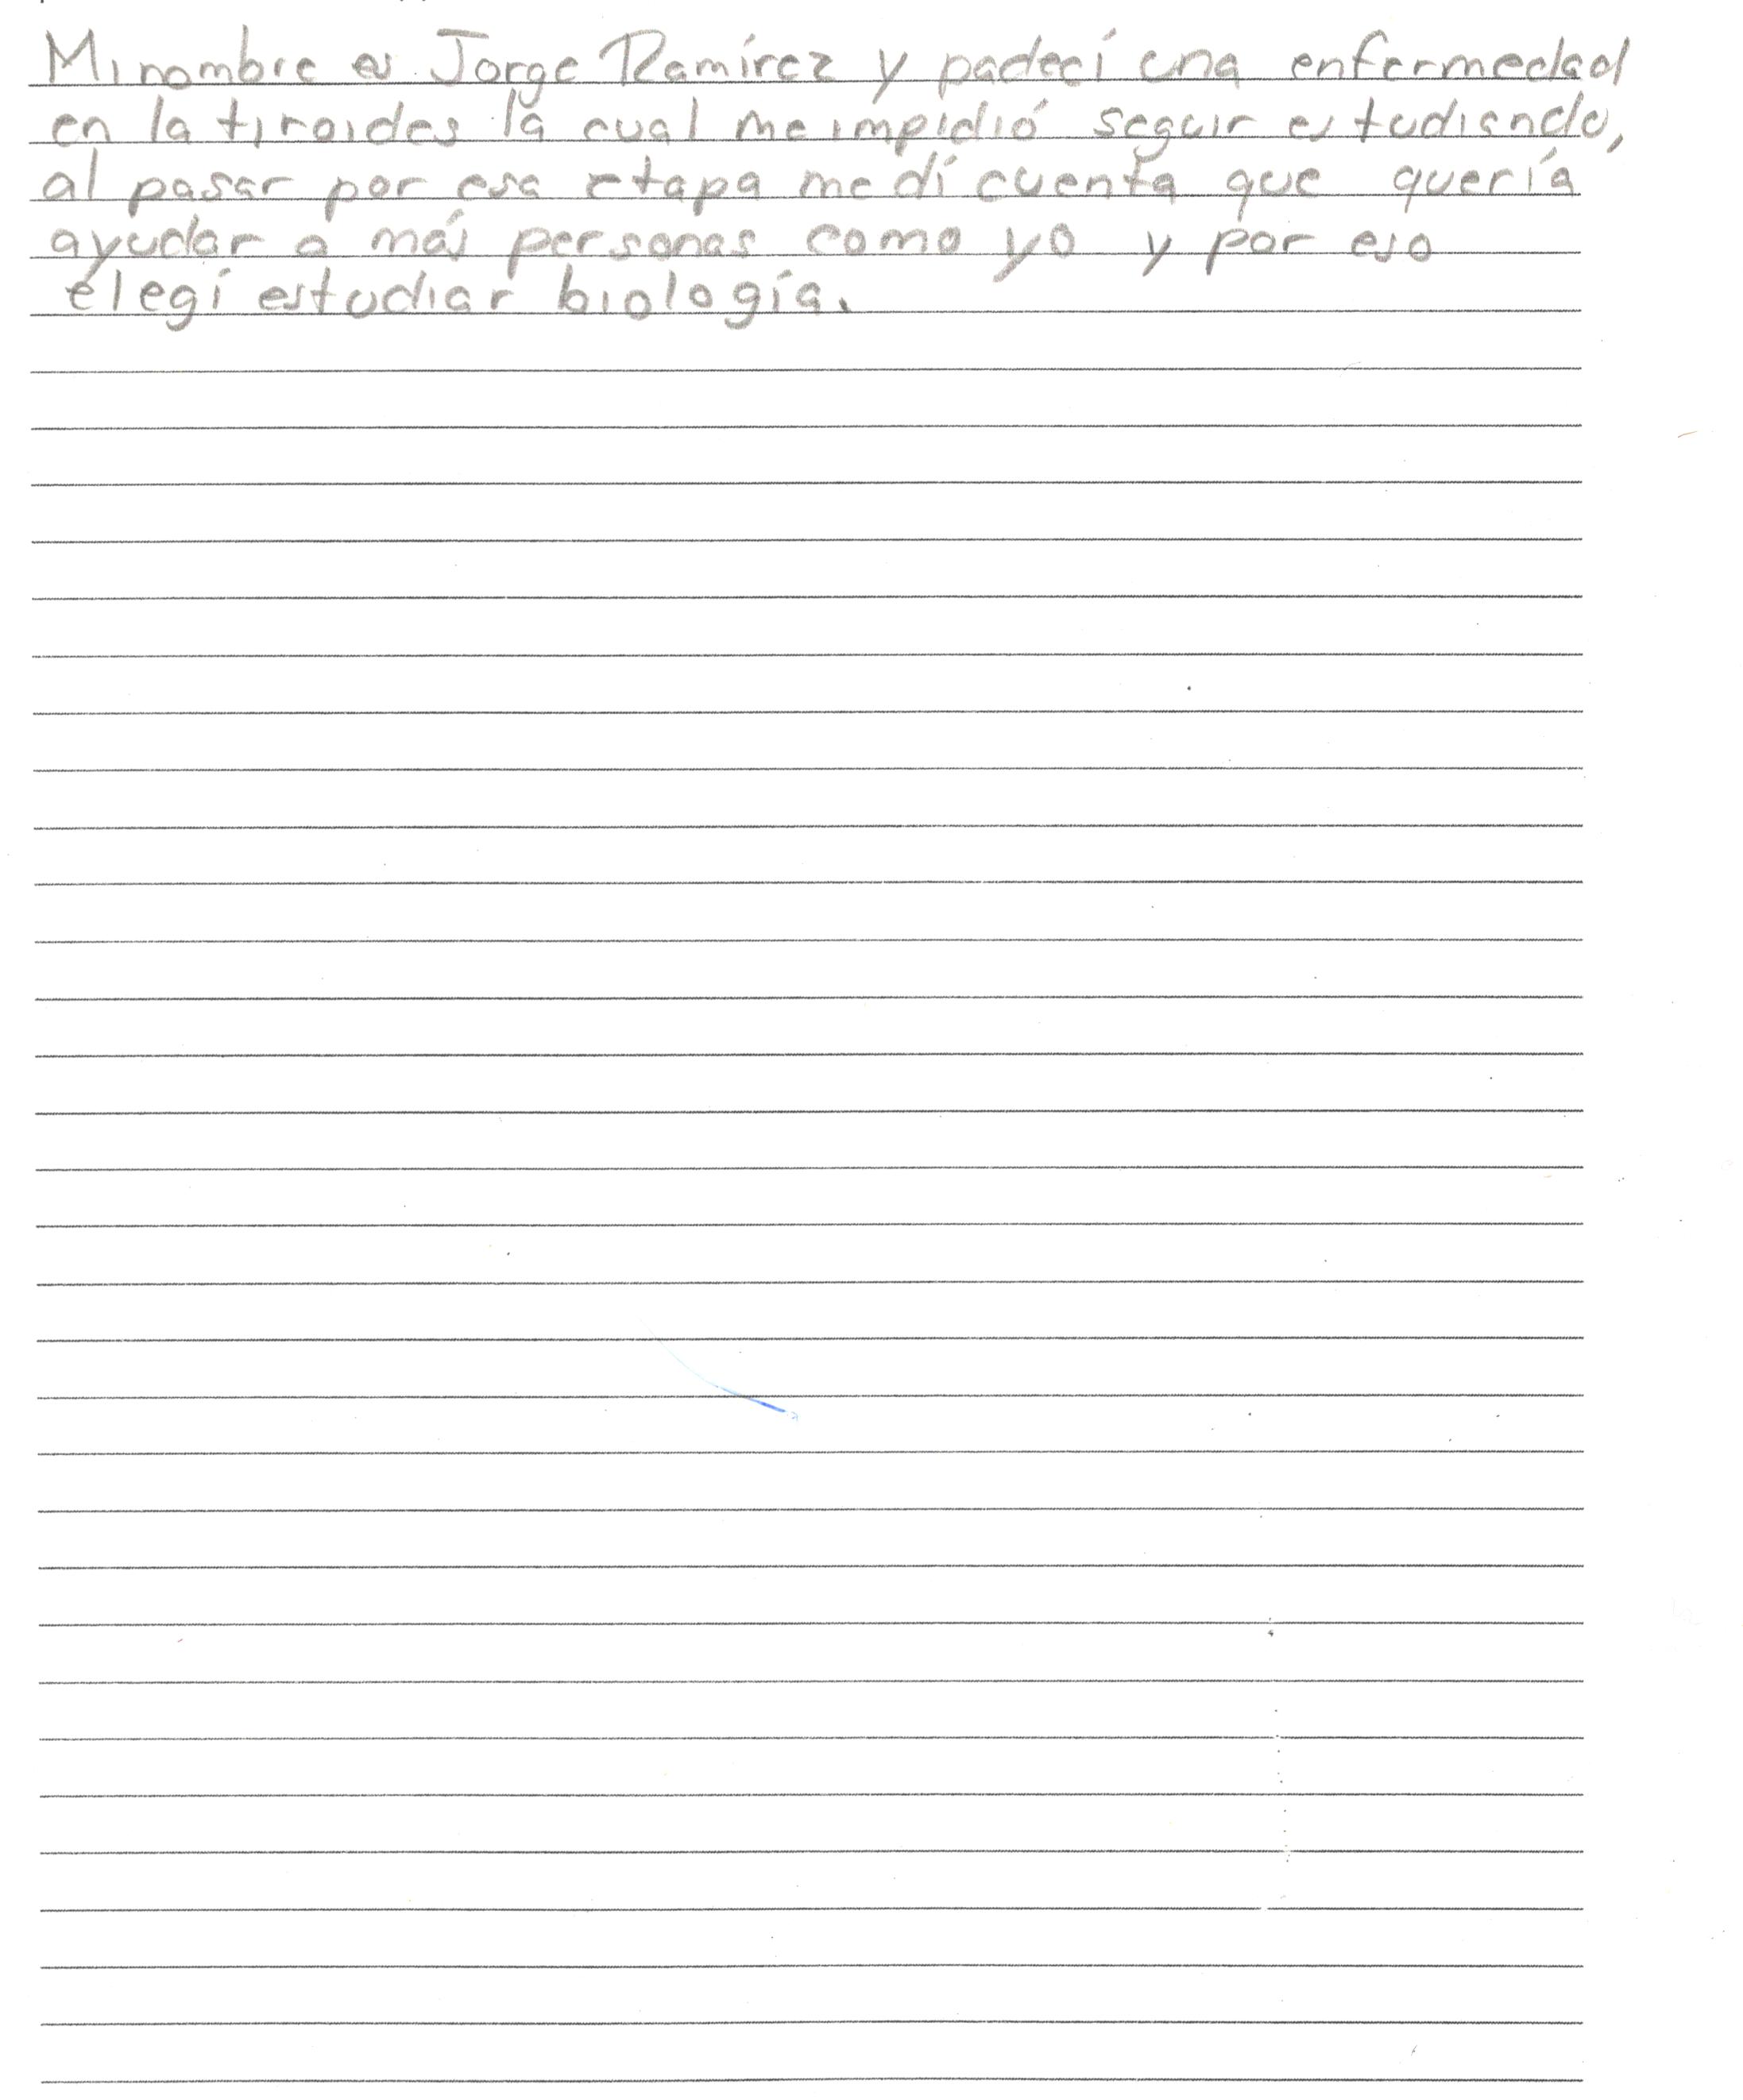 Mi nombre es Jorge Ramírez y padecí una enfermedad
en la tiroides la cual me impidió seguir estudiando,
al pasar por esa etapa me dí cuenta que quería
ayudar a más personas como yo y por eso
elegí estudiar biología.